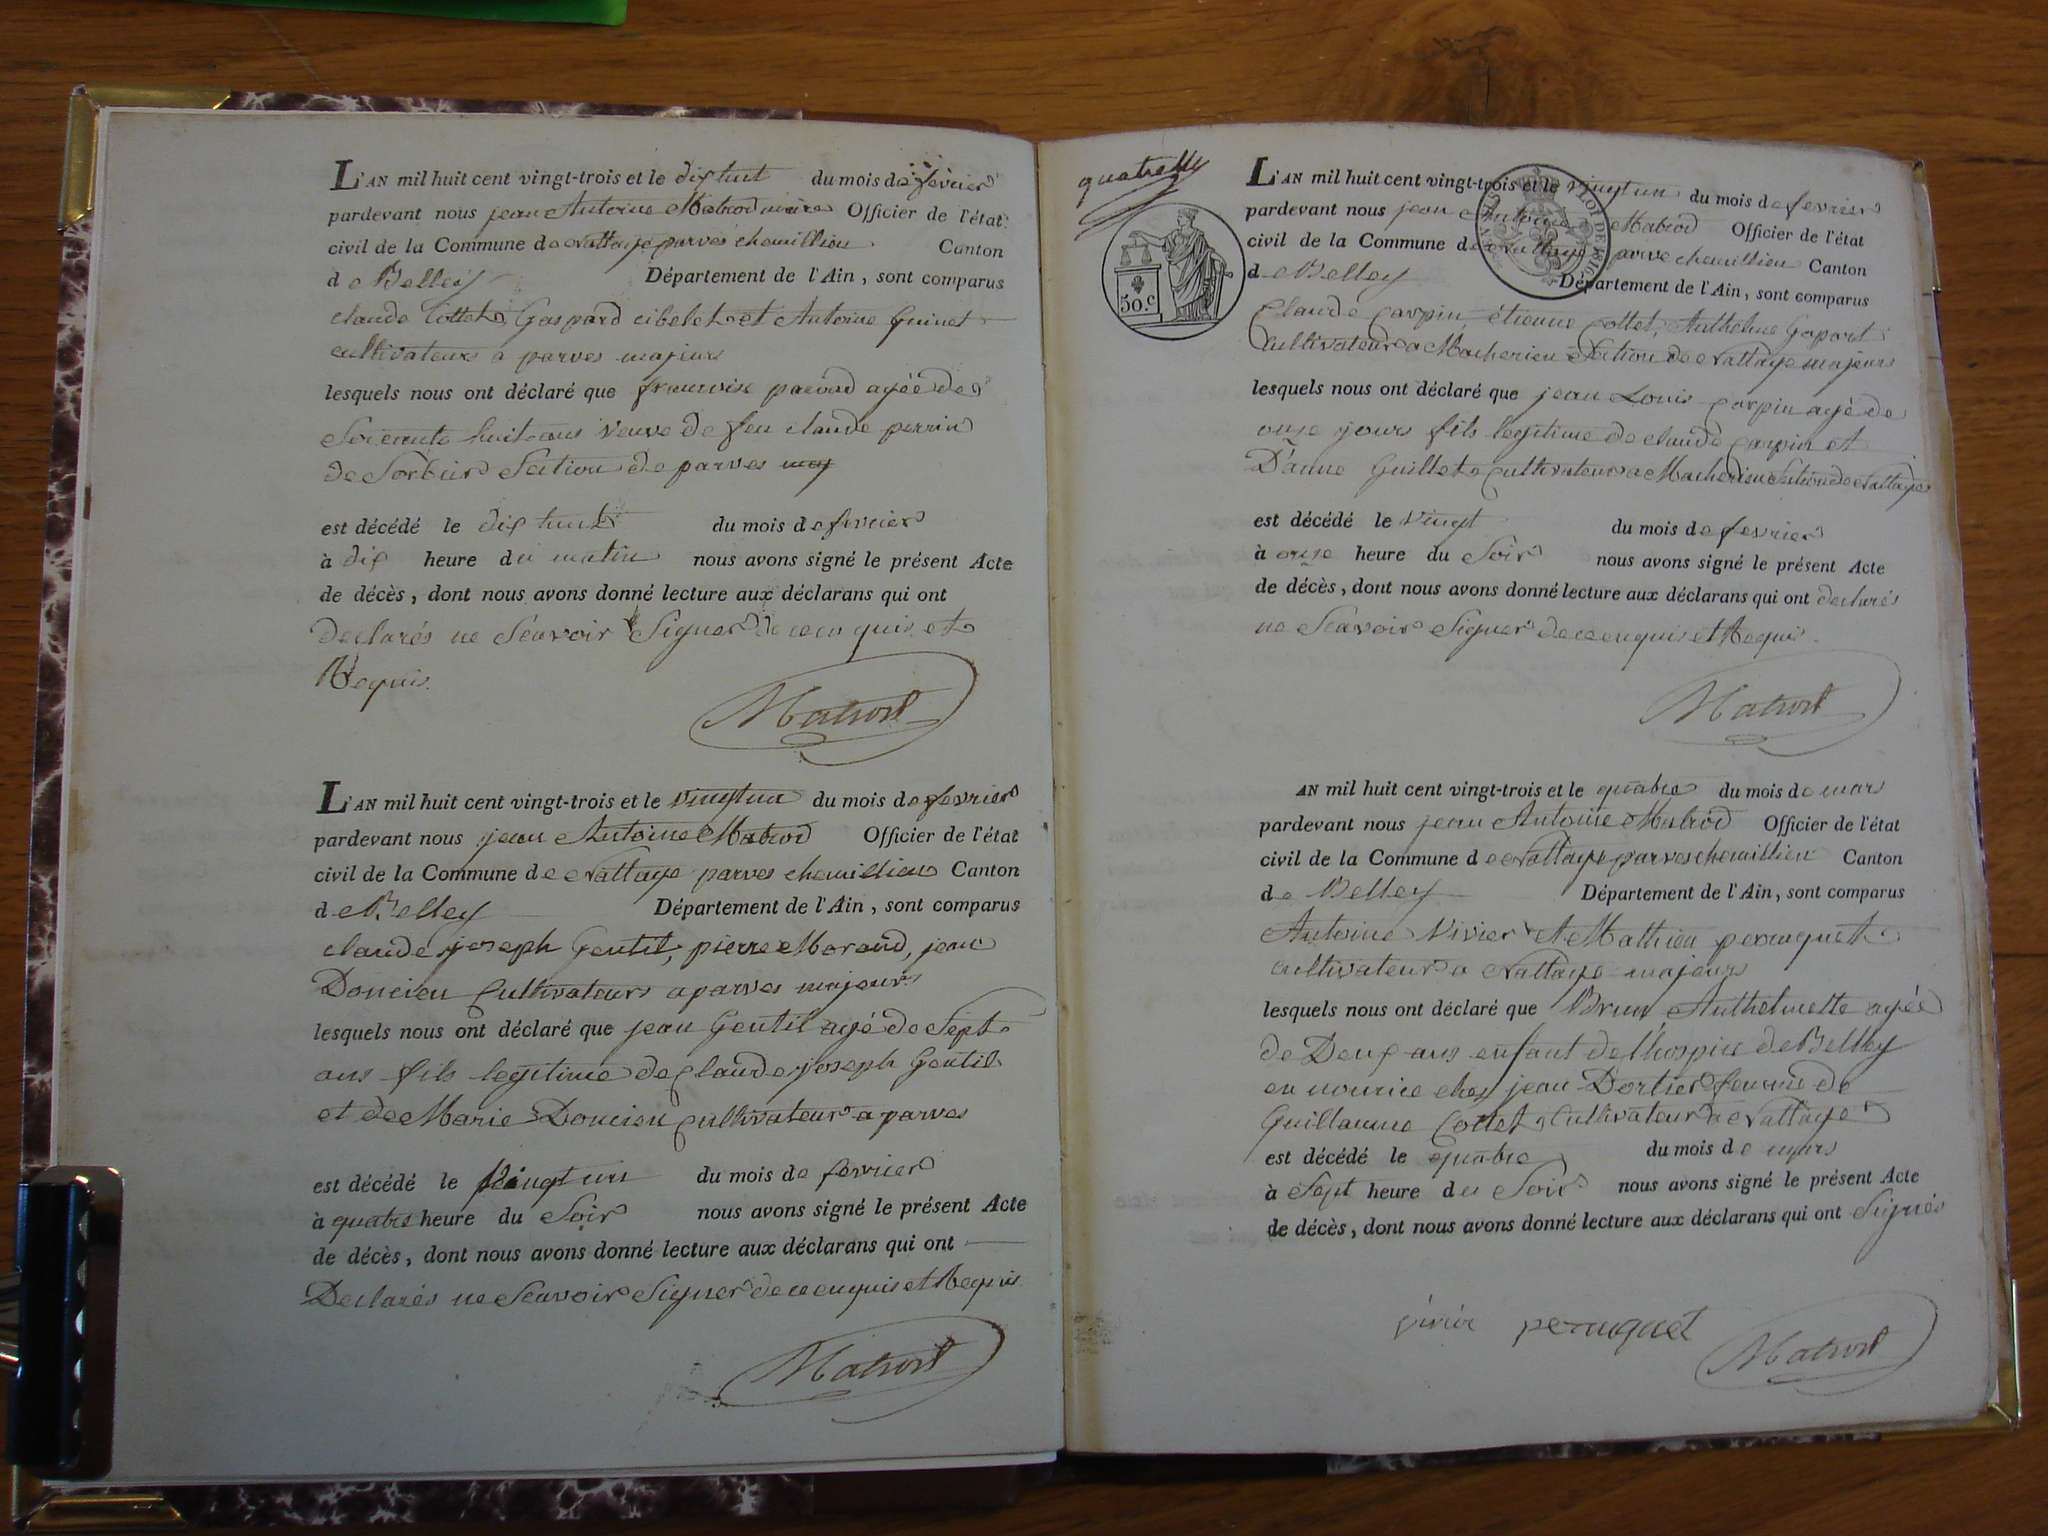 L'AN mil huit cent vingt-trois et le dix huit du mois de fevrier
pardevant nous jean Antoine Matrod maire Officier de l'état
civil de la Commune de Nattage parves chemillieu Canton
de Belley Département de l'Ain, sont comparus
claude Cottet, Gaspard cibelet et Antoine Guinet
cultivateurs a parves majeurs
lesquels nous ont déclaré que francoise pavod agée de
Soixante huit ans veuve de feu claude perrin
de Sorbier Section de parves
est décédé le dix huit du mois de fevrier
à dix heure du matin nous avons signé le présent Acte
de décès, dont nous avons donné lecture aux déclarans qui ont
declarés ne Scavoir Signer de ce enquis et
Requis.
Matrod
L'AN mil huit cent vingt-trois et le vingt un du mois de fevrier
pardevant nous jean Antoine Matrod Officier de l'état
civil de la Commune de Nattage parves chemillieu Canton
de Belley Département de l'Ain, sont comparus
claude joseph Gentil, pierre Morand, jean
Doncieu Cultivateurs a parves majeurs
lesquels nous ont déclaré que jean Gentil agé de Sept
ans fils legitime de Claude joseph Gentil
et de Marie Doncieu Cultivateur a parves
est décédé le vingt un du mois de fevrier
à quatre heure du Soir nous avons signé le présent Acte
de décès, dont nous avons donné lecture aux déclarans qui ont
Declarés ne Scavoir Signer de ce enquis et Requis
Matrod
50.c
L'AN mil huit cent vingt-trois et le vingt un du mois de fevrier
pardevant nous jean Antoine Matrod Officier de l'état
civil de la Commune de Nattage parve chemillieu Canton
de Belley Département de l'Ain, sont comparus
Claude Carpin, étienne Cottet, Anthelme Gopart
Cultivateur a Macherieu Section de Nattage majeurs
lesquels nous ont déclaré que jean Louis Carpin agé de
onze jours fils legitime de claude Carpin et
D'anne Guillet Cultivateur a Macherieu Section de Nattage
est décédé le vingt du mois de fevrier
à onze heure du Soir nous avons signé le présent Acte
de décès, dont nous avons donné lecture aux déclarans qui ont declarés
ne Scavoir Signer de ce enquis et Requis.
Matrod
AN mil huit cent vingt-trois et le quatre du mois de mars
pardevant nous jean Antoine Matrod Officier de l'état
civil de la Commune de Nattage parves chemillieu Canton
de Belley Département de l'Ain, sont comparus
Antoine Vivier et Mathieu peruquet
cultivateur a Nattage majeurs
lesquels nous ont déclaré que Brun Anthelmette agée
de Deux ans enfant de l'hospice de Belley
en nourice chez jean Dortier femme de
Guillaume Cottet Cultivateur a Nattage
est décédé le quatre du mois de mars
à Sept heure du Soir nous avons signé le présent Acte
de décès, dont nous avons donné lecture aux déclarans qui ont Signés
vivier peruquet
Matrod